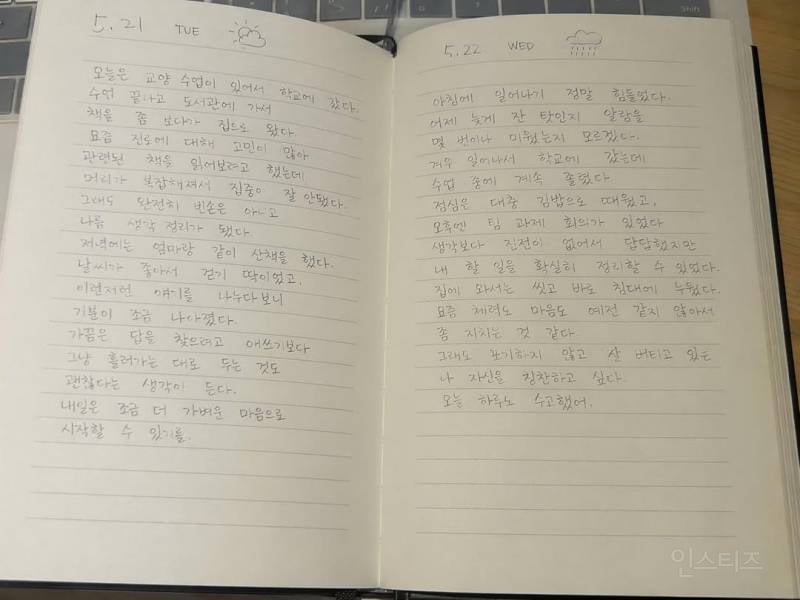 5. 21 TUE
오늘은 교양 수업이 있어서 학교에 갔다.
수업 끝나고 도서관에 가서
책을 좀 보다가 집으로 왔다.
요즘 진로에 대해 고민이 많아
관련된 책을 읽어보려고 했는데
머리가 복잡해져서 집중이 잘 안됐다.
그래도 완전히 빈손은 아니고
나름 생각 정리가 됐다.
저녁에는 엄마랑 같이 산책을 했다.
날씨가 좋아서 걷기 딱이었고,
이런저런 얘기를 나누다보니
기분이 조금 나아졌다.
가끔은 답을 찾으려고 애쓰기보다
그냥 흘러가는 대로 두는 것도
괜찮다는 생각이 든다.
내일은 조금 더 가벼운 마음으로
시작할 수 있기를.
5. 22 WED
아침에 일어나기 정말 힘들었다.
어제 늦게 잔 탓인지 알람을
몇 번이나 미뤘는지 모르겠다.
겨우 일어나서 학교에 갔는데
수업 중에 계속 졸렸다
점심은 대충 김밥으로 때웠고,
오후엔 팀 과제 회의가 있었다
생각보다 진전이 없어서 답답했지만
내 할 일을 확실히 정리할 수 있었다.
집에 와서는 씻고 바로 침대에 누웠다.
요즘 체력도 마음도 예전 같지 않아서
좀 지치는 것 같다
그래도 포기하지 않고 잘 버티고 있는
나 자신을 칭찬하고 싶다.
오늘 하루도 수고했어.
인스티즈
shift